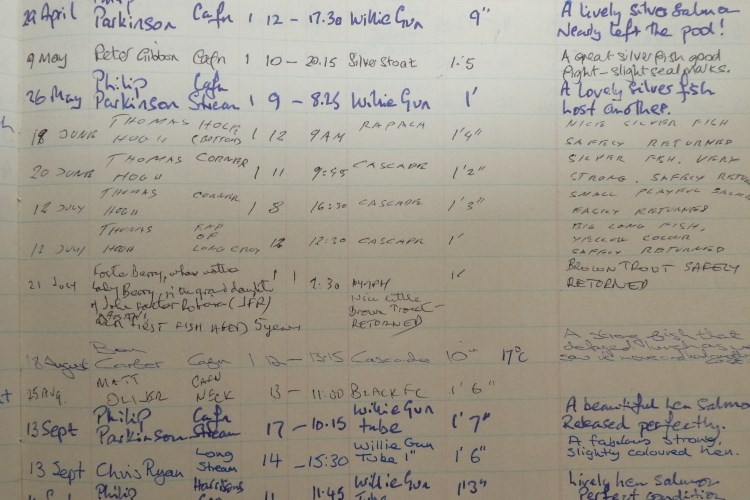 29 April Parkinson Cafn 1 12 - 17.30 Willie Gun 9" A lively silver salmon
Nearly left the pool!
9 May Peter Gibbon Cafn 1 10 - 20.15 Silver Stoat 1.5 A great silver fish good
fight - slight seal marks.
Philip Cafn
26 May Parkinson Stream 1 9 - 8.25 Willie Gun 1' A Lovely silver fish
Lost another.
THOMAS HOLE RAPALA NICE SILVER FISH
18 JUNE HOGH (BOTTOM) 1 12 9AM 1'4" SAFELY RETURNED
THOMAS CORNER SILVER FISH, VERY
20 JUNE HOGH 1 11 9:45 CASCADE 1'2" STRONG. SAFELY
THOMAS CORNER SMALL PLAYFUL
12 JULY HOGH 1 8 16:30 CASCADE 1'3" EASILY RETURNED
THOMAS END BIG LONG FISH,
OF YELLOW COLOUR
12 JULY HOGH LONG 12 12:30 CASCADE 1' SAFELY RETURNED
Foster Berry, BROWN TROUT SAFELY
21 JULY 1 1 7.30 NYMPH RETURNED
Nice little
Brown Trout -
FIRST FISH AGED 5 years RETURNED
A strong fish that
18 August Corbet Cafn 1 12 - 13:15 Cascade 10" 17°C
MATT CAFN
25 AUG. OLIVER NECK 13 - 11:00 BLACK FC 1'6"
Philip Cafn Willie Gun A beautiful hen salmon
13 Sept Parkinson Stream 17 - 10.15 tube 1'7" Released perfectly.
Long Willie Gun A fabulous strong,
13 Sept Chris Ryan Stream 14 - 15:30 Tube 1" 1'6" slightly coloured hen.
Philip Harrisons 11.45 Willie Gun 1'3" Lively hen salmon
Perfect condition